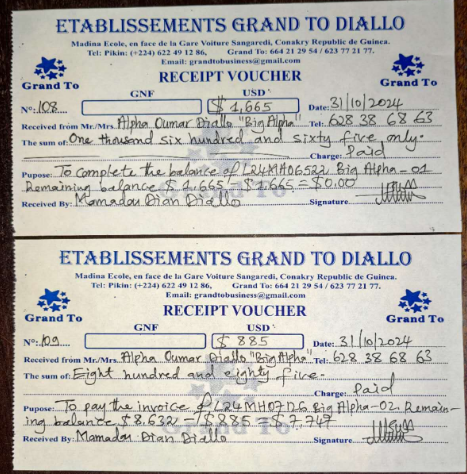 ETABLISSEMENTS GRAND TO DIALLO
Madina Ecole, en face de la Gare Voiture Sangaredi, Conakry Republic de Guinea.
Tel: Pikin: (+224) 622 49 12 86, Grand To: 664 21 29 54 / 623 77 21 77.
Email: grandtobusiness@gmail.com
Grand To
RECEIPT VOUCHER
Grand To
GNF USD
N°: 108 $ 1,665 Date: 31/10/2024
Received from Mr./Mrs. Alpha Oumar Diallo "Big Alpha" Tel: 628 38 68 63
The sum of: One thousand six hundred and sixty five only.
Charge: Paid
Pupose: To complete the balance of L24MH06522 Big Alpha-01
Remaining balance $ 1,665 - $ 1,665 = $0.00
Received By: Mamadou Dian Diallo Signature
ETABLISSEMENTS GRAND TO DIALLO
Madina Ecole, en face de la Gare Voiture Sangaredi, Conakry Republic de Guinea.
Tel: Pikin: (+224) 622 49 12 86, Grand To: 664 21 29 54 / 623 77 21 77.
Email: grandtobusiness@gmail.com
Grand To
RECEIPT VOUCHER
Grand To
GNF USD
N°: 109 $ 885 Date: 31/10/2024
Received from Mr./Mrs. Alpha Oumar Diallo "Big Alpha" Tel: 628 38 68 63
The sum of: Eight hundred and eighty five.
Charge: Paid
Pupose: To pay the invoice of L24MH07126 Big Alpha-02. Remain-
ing balance $8.632 - $885 = $7.747
Received By: Mamadou Dian Diallo Signature